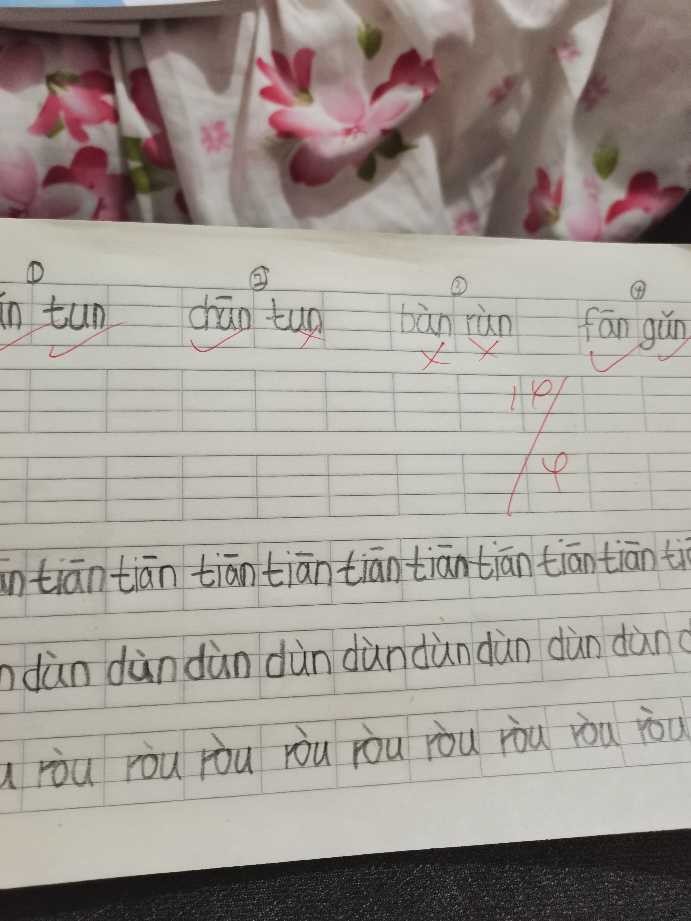 ① ② ③ ④
tun chān tun bàn rùn fān gǔn
tiān tiān tiān tiān tiān tiān tiān tiān tiān
dùn dùn dùn dùn dùn dùn dùn dùn dùn
ròu ròu ròu ròu ròu ròu ròu ròu ròu